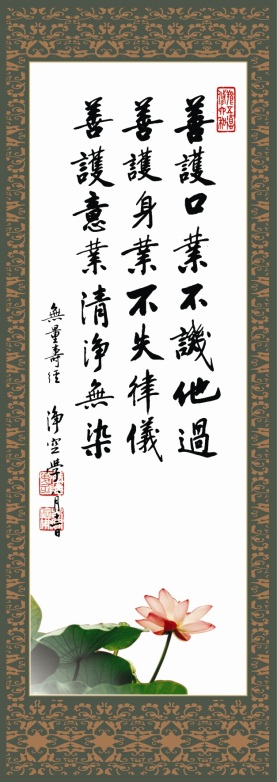 善護口業不譏他過
善護身業不失律儀
善護意業清淨無染
無量壽經
淨空學
月十二日